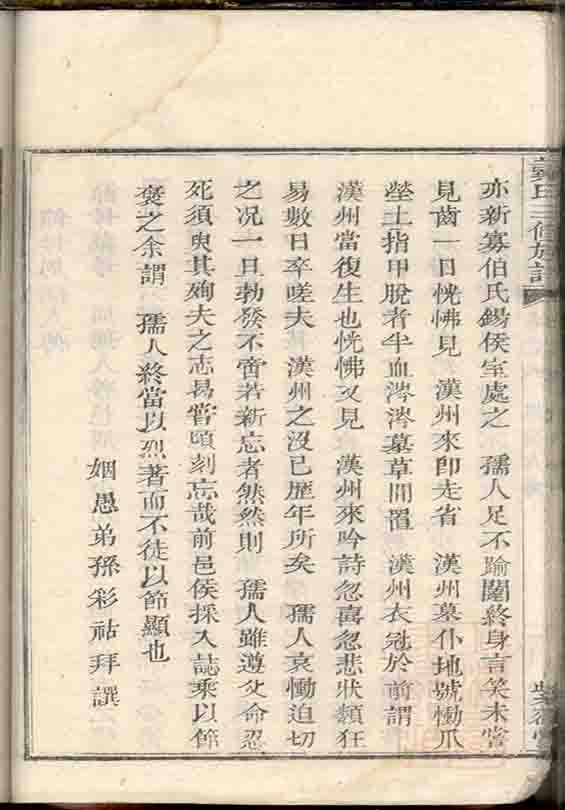 亦新寡伯氏錫侯室處之 孺人足不踰閫終身言笑未嘗
見齒一日恍怫見 漢州來卽走省 漢州墓仆地號慟爪
塋土指甲脫者半血涔涔墓草間置 漢州衣冠於前謂
漢州當復生也恍怫又見 漢州來吟詩忽喜忽悲狀類狂
易數日卒嗟夫 漢州之沒已歷年所矣 孺人哀慟迫切
之况一旦勃發不啻若新忘者然然則 孺人雖遵父命忍
死須臾其殉夫之志曷嘗頃刻忘哉前邑侯採入誌乘以節
褒之余謂 孺人終當以烈著而不徒以節顯也
姻愚弟孫彩祜拜譔
氏三修族譜